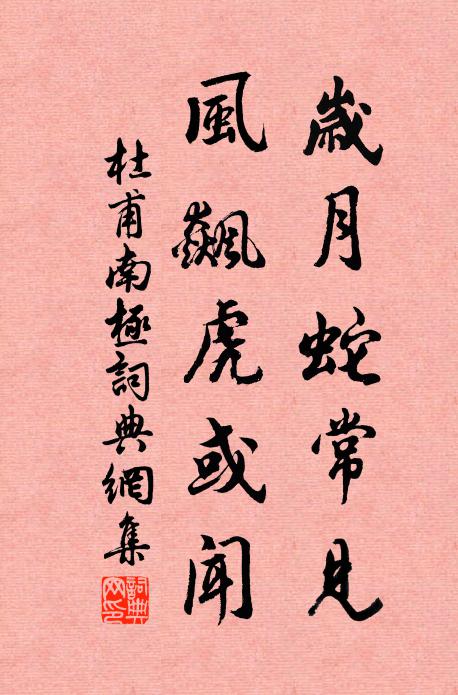 歲月蛇常見
風飆虎或聞
杜甫南極詞典網集
詞典网印